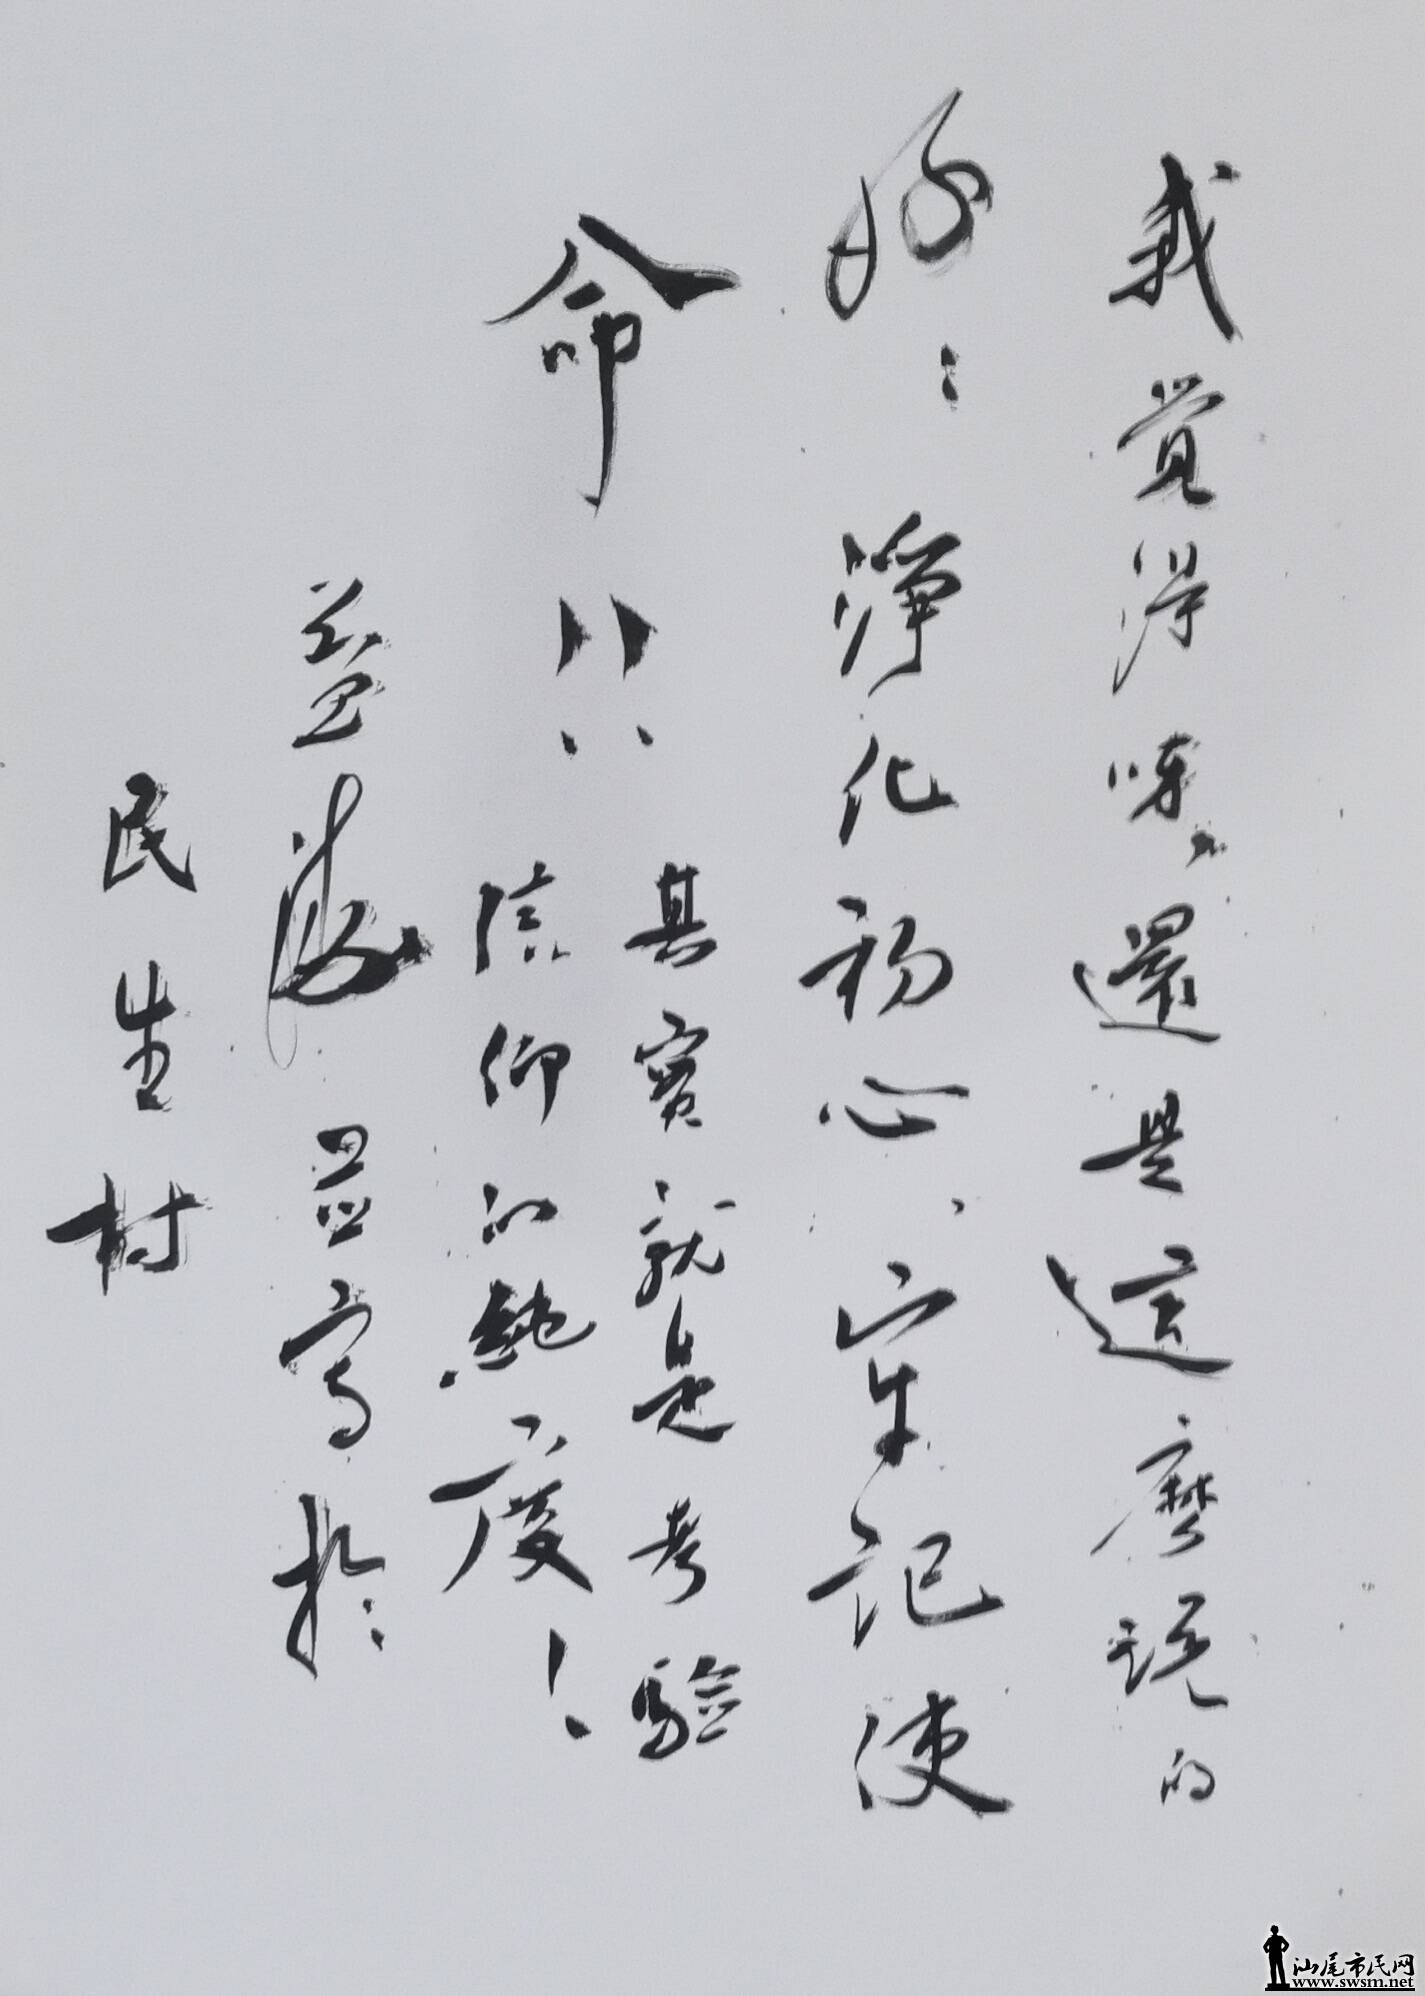 我觉得 、還是這麼説的
好：淨化初心、牢记使
命！！
其實就是考驗
信仰的純度！
益海 寫於
民生村
汕尾市民网
www.swsm.net